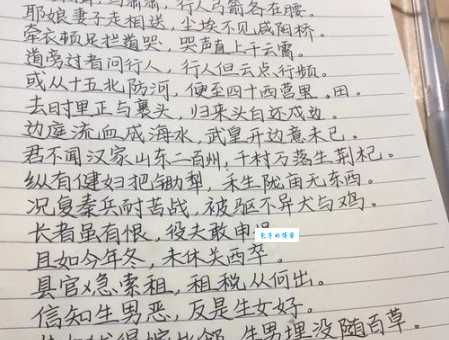 萧萧，行人弓箭各在腰。
耶娘妻子走相送，尘埃不见咸阳桥。
牵衣顿足拦道哭，哭声直上干云霄。
道旁过者问行人，行人但云点行频。
或从十五北防河，便至四十西营里。田。
去时里正与裹头，归来头白还戍边。
边庭流血成海水，武皇开边意未已。
君不闻汉家山东二百州，千村万落生荆杞。
纵有健妇把锄犁，禾生陇亩无东西。
况复秦兵耐苦战，被驱不异犬与鸡。
长者虽有恨，役夫敢申
且如今年冬，未休关西卒。
县官急索租，租税从何出。
信知生男恶，反是生女好。
生男埋没随百草。